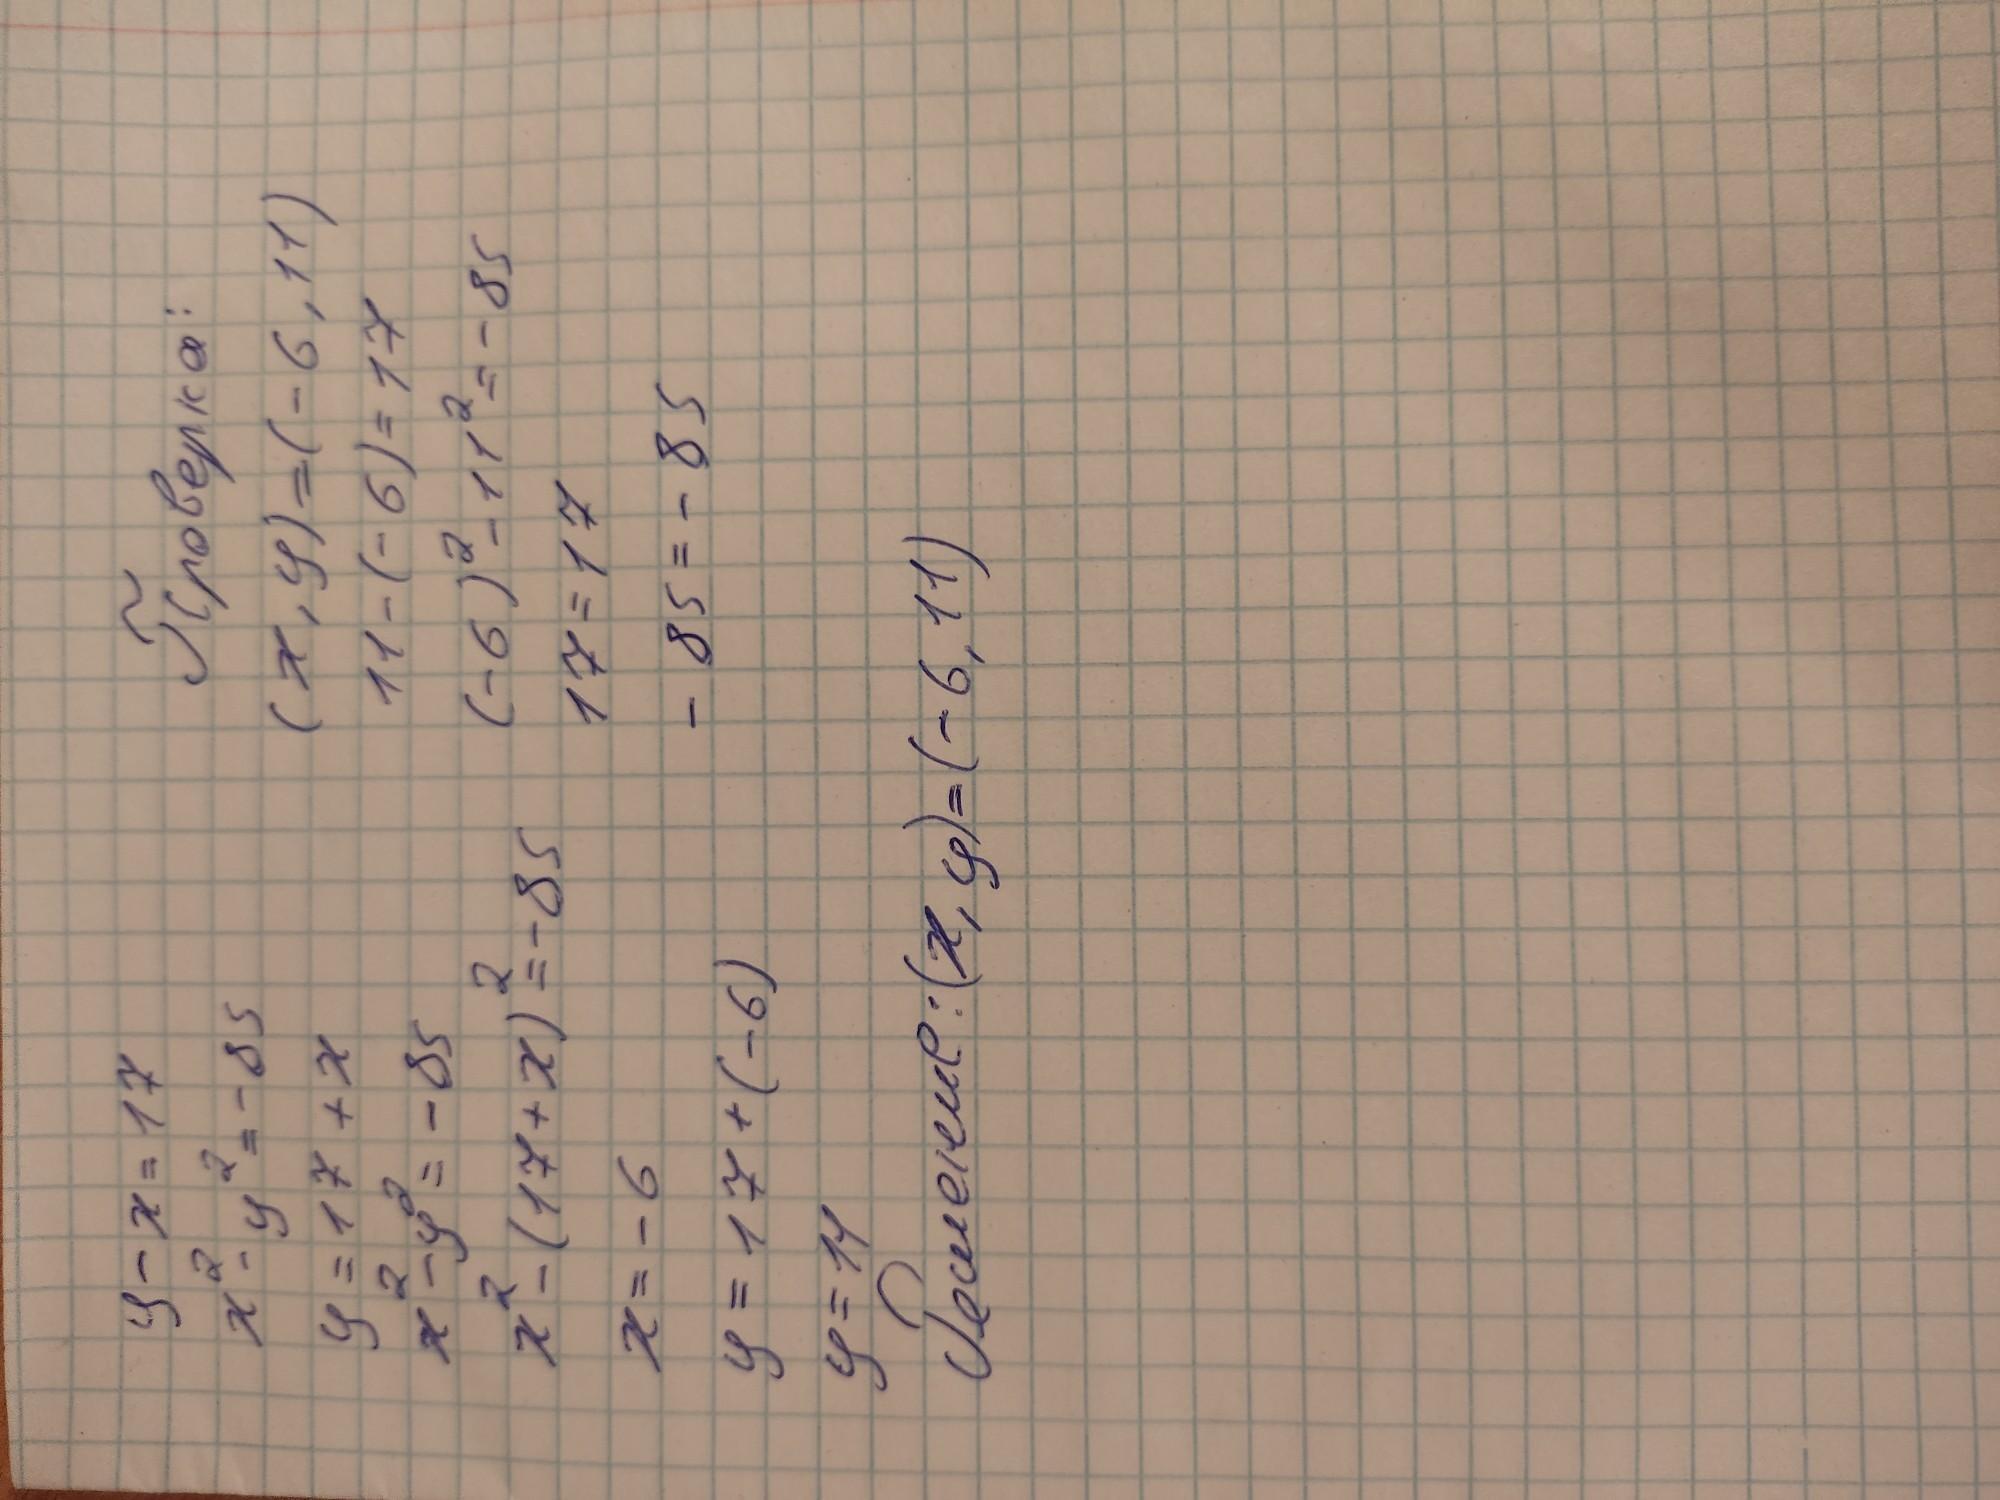 y-x=17
x²-y²=-85
y=17+x
x²-y²=-85
x²-(17+x)²=-85
x=-6
y=17+(-6)
y=11
Решение:(x,y)=(-6,11)
Проверка:
(x,y)=(-6,11)
11-(-6)=17
(-6)²-11²=-85
17=17
-85=-85